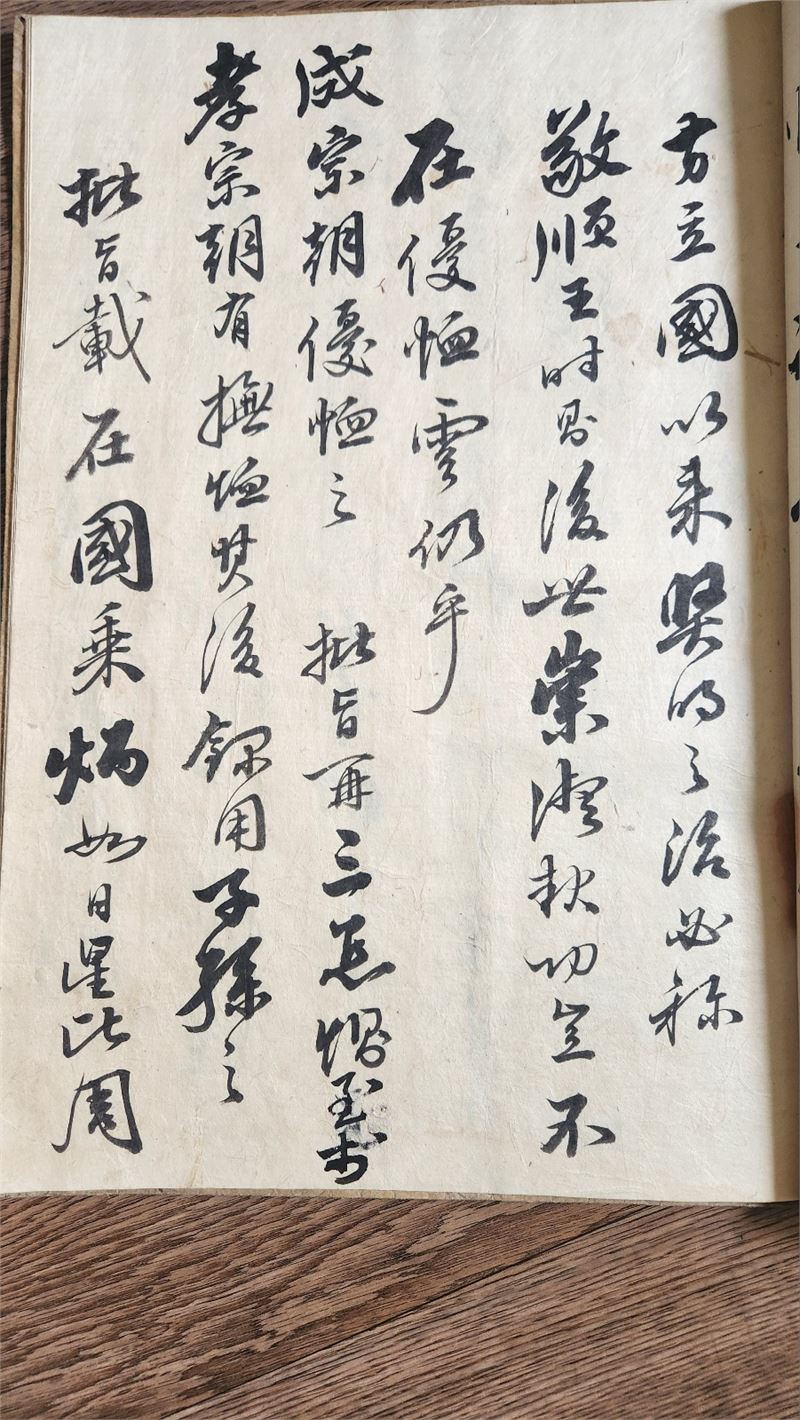 方立國以來熙明之治必稱
敬順王時則後世崇德報功豈不
在優恤雲仍乎
成宗朝優恤之 批旨再三
孝宗朝有撫恤其後錄用子孫之
批旨載在國乘炳如日星此周